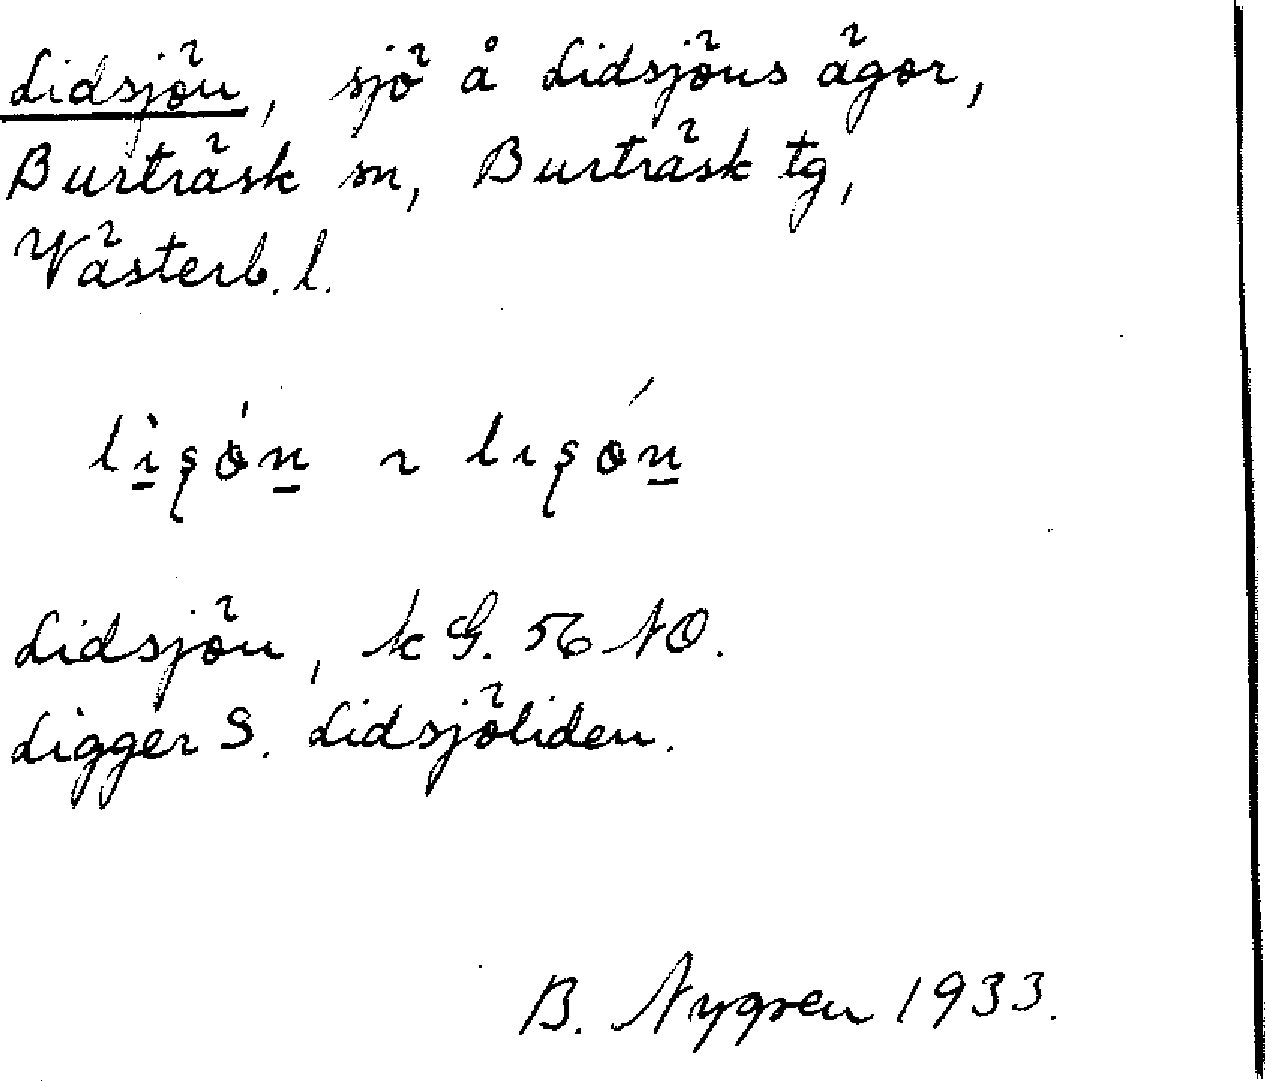 Lidsjön, sjö å Lidsjöns ägor,
Burträsk sn, Burträsk tg,
Västerb. l.
Lidsjön, k G. 56 NO.
Ligger S. Lidsjöliden.
B. Nygren 1933.